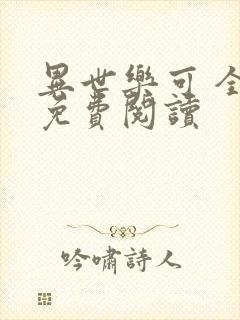 異世樂可 全
免費閱讀
吟嘯詩人